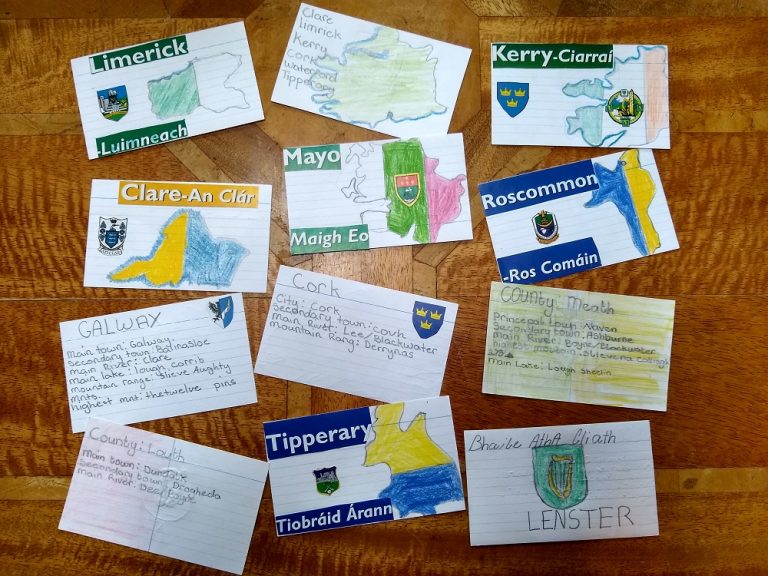 Limerick
-Luimneach
Clare
Limrick
Kerry
Cork
Waterford
Tipperary
Kerry-Ciarraí
Clare-An Clár
Mayo
Maigh Eo
Roscommon
-Ros Comáin
GALWAY
main town: Galway
secondary town: Balinasloe
main River: Clare
main lake: lough corrib
mountain range: Slieve Aughty
mnts.
highest mnt: the twelve pins
Cork
City: Cork
Secondary town: Covh
main River: Lee/Blackwater
mountain Rang: Derrynas
County: Meath
Principal town: Naven
Secondary town: Ashburne
main River: Boyne/Blackwater
highest moutain: Slieve na
Main Lake: Lough Sheelin
County: Louth
Main town: Dundalk
Secondary town: Drogheda
main River: Dee, Boyne
Tipperary
Tiobráid Árann
Bhaile AthA Cliath
LENSTER